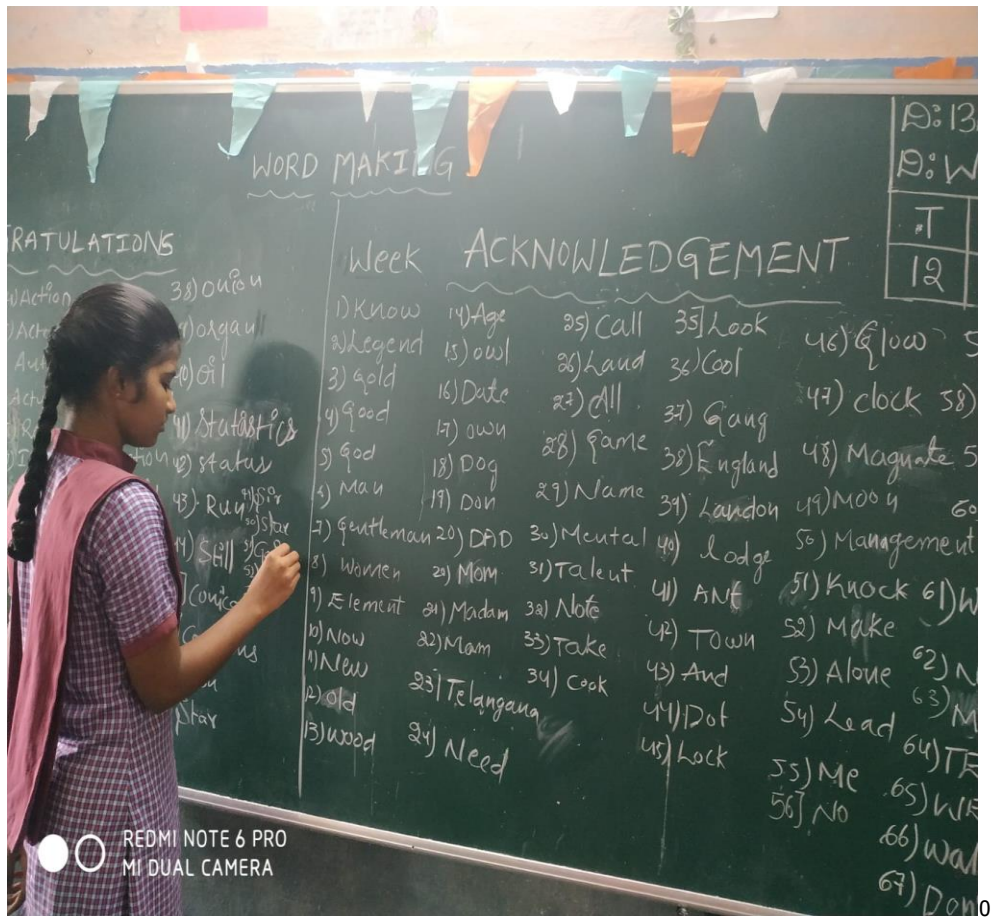 WORD MAKING
RATULATIONS
Action
38) onion
organ
Oil
41) Statastics
42) status
43) Run
Sir
Star
Still
Star
Week
ACKNOWLEDGEMENT
1) Know
2) Legend
3) Gold
4) Good
5) God
6) Man
7) Gentleman
8) Women
9) Element
10) Now
11) New
12) old
13) wood
14) Age
15) owl
16) Date
17) own
18) Dog
19) Don
20) DAD
20) Mom
21) Madam
22) Mam
23) Telangana
24) Need
25) Call
26) Land
27) All
28) Game
29) Name
30) Mental
31) Talent
32) Note
33) Take
34) Cook
35] Look
36) Cool
37) Gang
38) England
39) Landon
40) lodge
41) ANt
42) Town
43) And
44) Dot
45) Lock
46) Glow
47) clock
48) Magnate
49) Moon
50) Management
51) Knock
52) Make
53) Alone
54) Lead
55) Me
56] No
58)
61) W
62) N
63) M
64) TE
65) WE
66) wal
67) Don
D: 13
D: W
T
12
REDMI NOTE 6 PRO
MI DUAL CAMERA
0